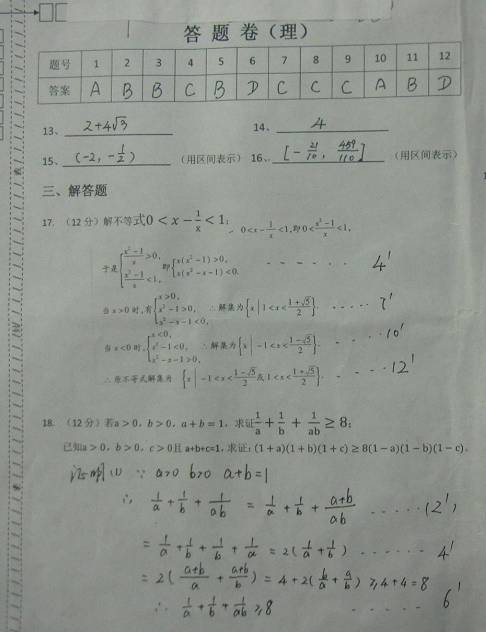 答 题 卷（理）
题号 1 2 3 4 5 6 7 8 9 10 11 12
答案 A B B C B D C C C A B D
13、 2+4√3 14、 4
15、 (-2, -1/2) （用区间表示） 16、 [-21/10, 459/110] （用区间表示）
三、解答题
17. （12分）解不等式0 < x − 1/x < 1; 0<x−1/x<1,即0<(x²−1)/x<1,
于是{(x²−1)/x>0, (x²−1)/x<1, 即{x(x²−1)>0, x(x²−x−1)<0. ------ 4'
当x>0时,有{x>0, x²−1>0, x²−x−1<0, ∴解集为{x | 1<x<(1+√5)/2}. ----- 7'
当x<0时,{x<0, x²−1<0, x²−x−1>0, ∴解集为{x | −1<x<(1−√5)/2}. ---- 10'
∴原不等式解集为 {x | −1<x<(1−√5)/2或1<x<(1+√5)/2}. ---- 12'
18. （12分）若a > 0, b > 0, a + b = 1, 求证1/a + 1/b + 1/ab ≥ 8;
已知a > 0, b > 0, c > 0且 a+b+c=1, 求证: (1 + a)(1 + b)(1 + c) ≥ 8(1 − a)(1 − b)(1 − c).
证明(1) ∵ a>0 b>0 a+b=1
∴ 1/a + 1/b + 1/ab = 1/a + 1/b + (a+b)/ab ------ (2')
= 1/a + 1/b + 1/b + 1/a = 2(1/a + 1/b) ------ 4'
= 2((a+b)/a + (a+b)/b) = 4+2(b/a + a/b) ≥ 4+4 = 8
∴ 1/a + 1/b + 1/ab ≥ 8 ------ 6'